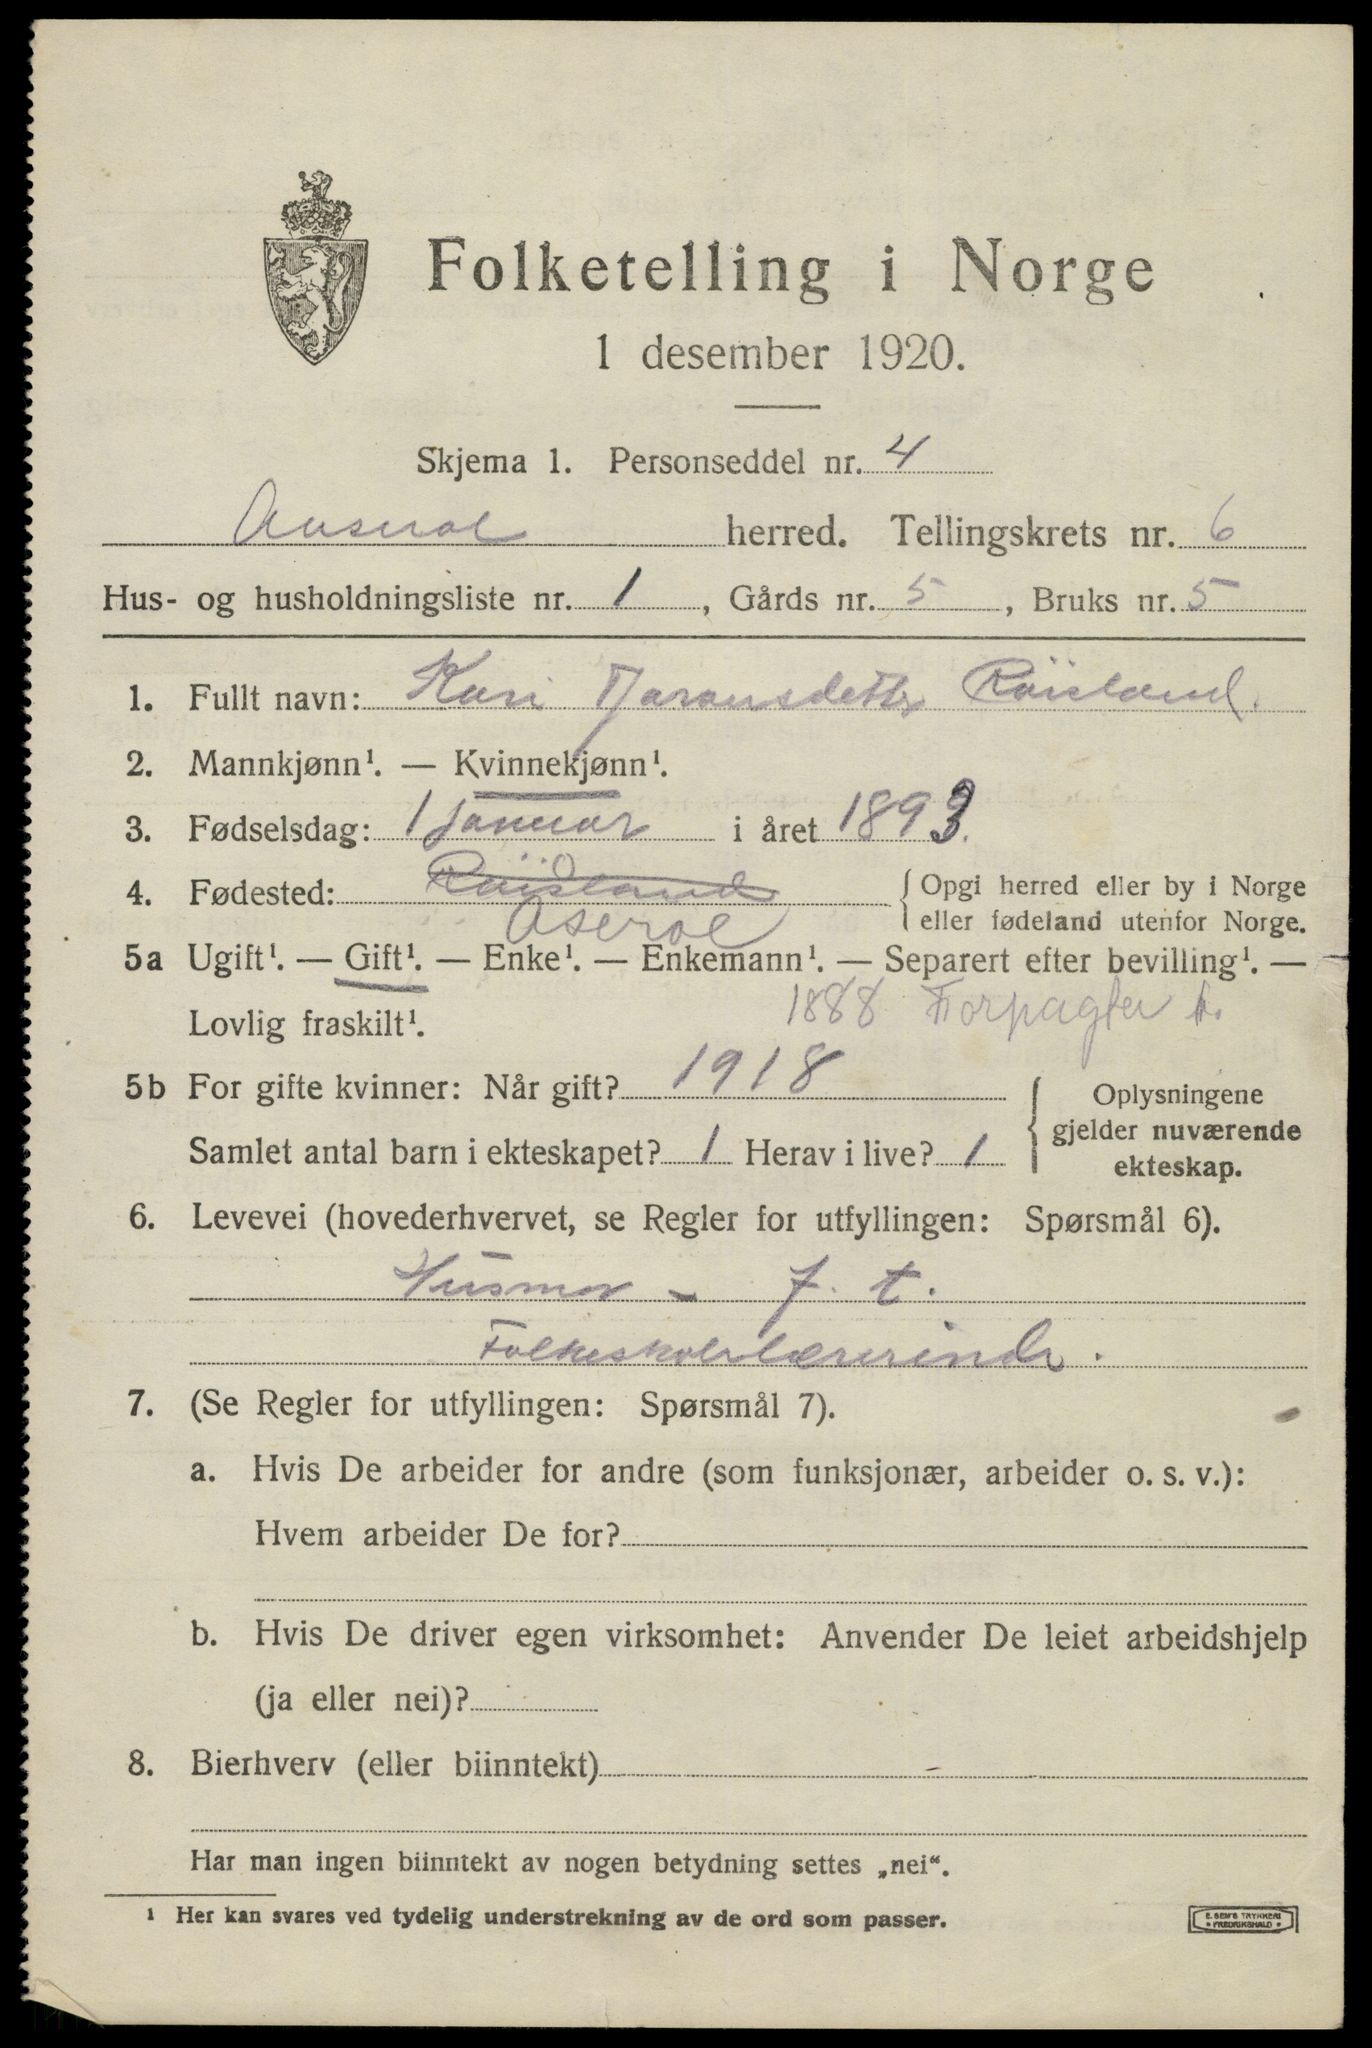 Folketelling i Norge
1 desember 1920.
Skjema 1. Personseddel nr. 4
Aaseral herred. Tellingskrets nr. 6
Hus- og husholdningsliste nr. 1, Gårds nr. 5, Bruks nr. 5
1. Fullt navn: Kari Taransdatter Röisland.
2. Mannkjønn¹. — Kvinnekjønn¹.
3. Fødselsdag: 1 Januar i året 1893.
4. Fødested: Röisland Opgi herred eller by i Norge
Aseral eller fødeland utenfor Norge.
5a Ugift¹. — Gift¹. — Enke¹. — Enkemann¹. — Separert efter bevilling¹. —
Lovlig fraskilt¹. 1888 Forpagter
5b For gifte kvinner: Når gift? 1918 Oplysningene
gjelder nuværende
Samlet antal barn i ekteskapet? 1 Herav i live? 1 ekteskap.
6. Levevei (hovederhvervet, se Regler for utfyllingen: Spørsmål 6).
Husmor - f. t.
Folkeskolelærerinde.
7. (Se Regler for utfyllingen: Spørsmål 7).
a. Hvis De arbeider for andre (som funksjonær, arbeider o. s. v.):
Hvem arbeider De for?
b. Hvis De driver egen virksomhet: Anvender De leiet arbeidshjelp
(ja eller nei)?
8. Bierhverv (eller biinntekt) -
Har man ingen biinntekt av nogen betydning settes „nei“.
¹ Her kan svares ved tydelig understrekning av de ord som passer.
E. SEM'S TRYKKERI
* FREDRIKSHALD *